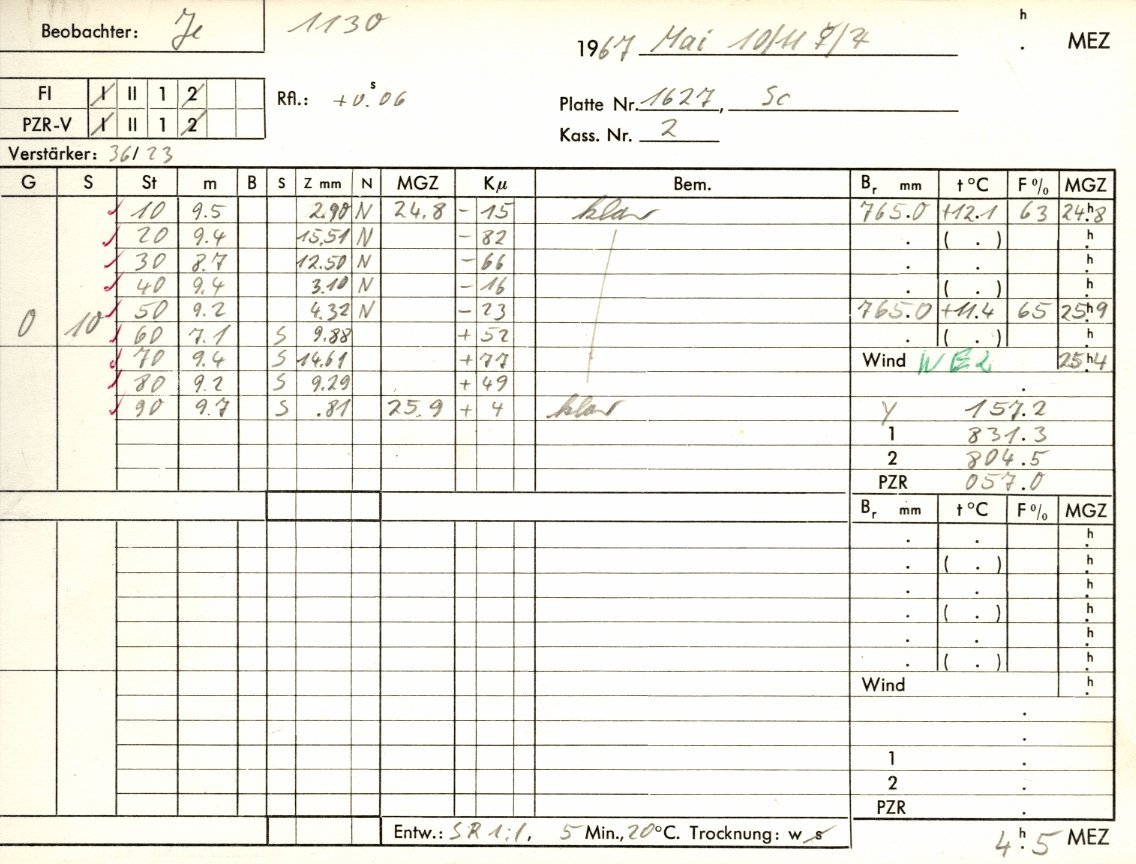 Beobachter: Je 1130
1967 Mai 10/11 h . MEZ
FI I II 1 2 Rfl.: +0.s06
PZR-V I II 1 2
Platte Nr. 1627, Sc
Kass. Nr. 2
Verstärker: 36/23
G S St m B S Z mm N MGZ Kμ Bem. Br mm t °C F % MGZ
10 9.5 2.90 N 24.8 - 15 klar 765.0 +12.1 63 24.h8
20 9.4 15.51 N - 82 . ( . ) .h
30 8.7 12.50 N - 66 . . .h
40 9.4 3.10 N - 16 . ( . ) .h
0 10 50 9.2 4.32 N - 23 765.0 +11.4 65 25.h9
60 7.1 S 9.88 + 52 . ( . ) .h
70 9.4 S 14.61 + 77 Wind 25.h4
80 9.2 S 9.29 + 49 .
90 9.7 S .81 25.9 + 4 klar Y 157.2
1 831.3
2 804.5
PZR 057.0
Br mm t °C F % MGZ
. . .h
. ( . ) .h
. . .h
. ( . ) .h
. . .h
. ( . ) .h
Wind .h
.
.
1 .
2 .
PZR .
Entw.: SR 1:1, 5 Min., 20 °C. Trocknung: w s
4.h5 MEZ